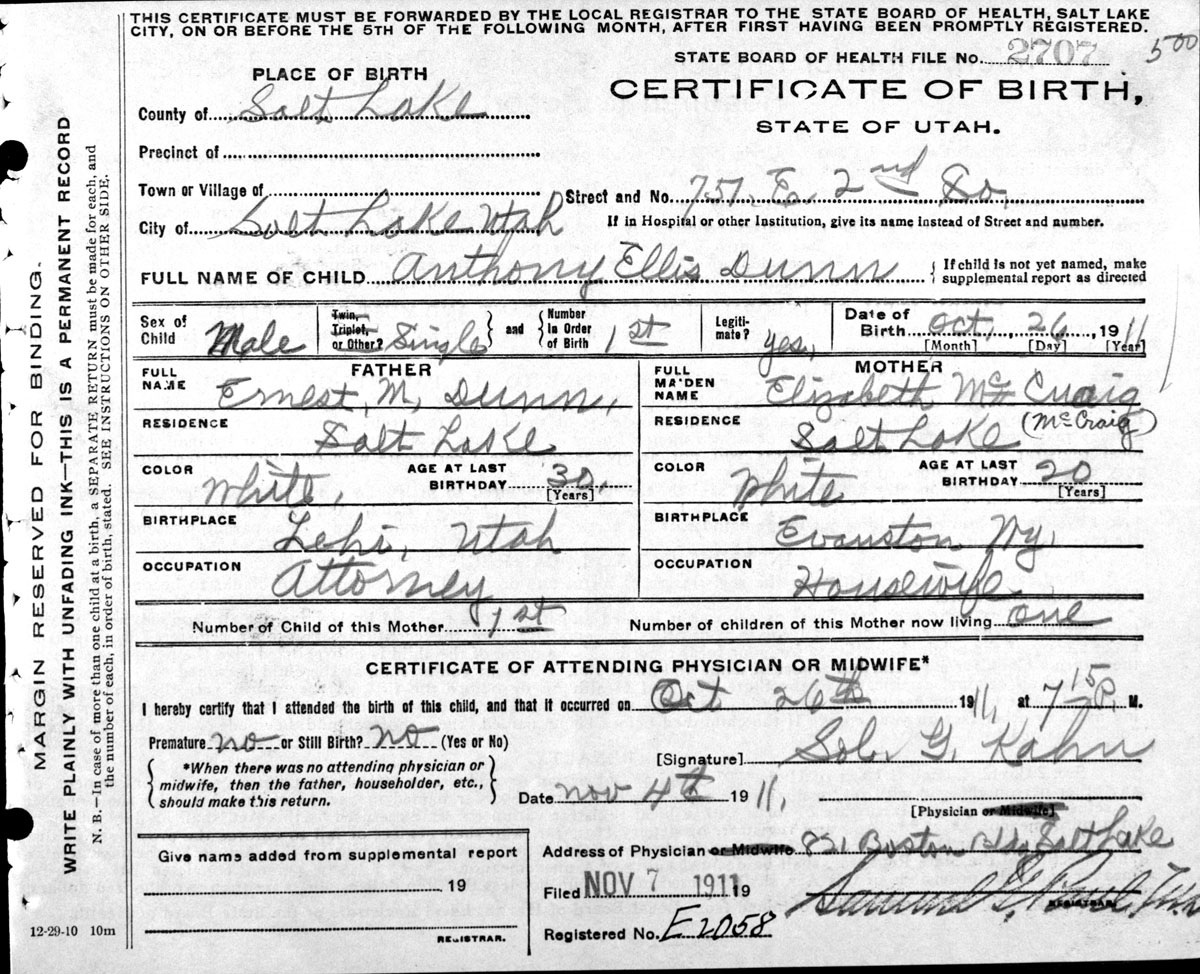 THIS CERTIFICATE MUST BE FORWARDED BY THE LOCAL REGISTRAR TO THE STATE BOARD OF HEALTH, SALT LAKE
CITY, ON OR BEFORE THE 5TH OF THE FOLLOWING MONTH, AFTER FIRST HAVING BEEN PROMPTLY REGISTERED.
STATE BOARD OF HEALTH FILE No. 2707 5 00
PLACE OF BIRTH
CERTIFICATE OF BIRTH,
County of Salt Lake
STATE OF UTAH.
Precinct of
Town or Village of
Street and No. 757. E. 2nd So.
City of Salt Lake Utah
If in Hospital or other Institution, give its name instead of Street and number.
FULL NAME OF CHILD Anthony Ellis Dunn { If child is not yet named, make supplemental report as directed
Sex of Child Male Twin, Triplet, or Other? Single } and { Number in Order of Birth 1st Legitimate? yes, Date of Birth Oct, 26, 1911
[Month] [Day] [Year]
FATHER
MOTHER
FULL NAME Ernest, M, Dunn,
FULL MAIDEN NAME Elizabeth Mc Craig
(McCraig)
RESIDENCE Salt Lake
RESIDENCE Salt Lake
COLOR White, AGE AT LAST BIRTHDAY 30, [Years]
COLOR White AGE AT LAST BIRTHDAY 20 [Years]
BIRTHPLACE Lehi, Utah
BIRTHPLACE Evanston Wy,
OCCUPATION Attorney
OCCUPATION Housewife
Number of Child of this Mother 1st Number of children of this Mother now living one
CERTIFICATE OF ATTENDING PHYSICIAN OR MIDWIFE*
I hereby certify that I attended the birth of this child, and that it occurred on Oct 26th 1911, at 7 15 P. M.
Premature no or Still Birth? no (Yes or No)
[Signature] Sol. G. Kahn
{ *When there was no attending physician or midwife, then the father, householder, etc., should make this return. }
Date Nov 4th 1911,
[Physician or Midwife]
Address of Physician or Midwife 821 Boston Bldg Salt Lake
Give name added from supplemental report
19
REGISTRAR.
Filed NOV 7 1911 19
Samuel G. Paul
REGISTRAR.
Registered No. E2058
12-29-10 10m
MARGIN RESERVED FOR BINDING.
WRITE PLAINLY WITH UNFADING INK—THIS IS A PERMANENT RECORD
N. B.—In case of more than one child at a birth, a SEPARATE RETURN must be made for each, and
the number of each, in order of birth, stated. SEE INSTRUCTIONS ON OTHER SIDE.